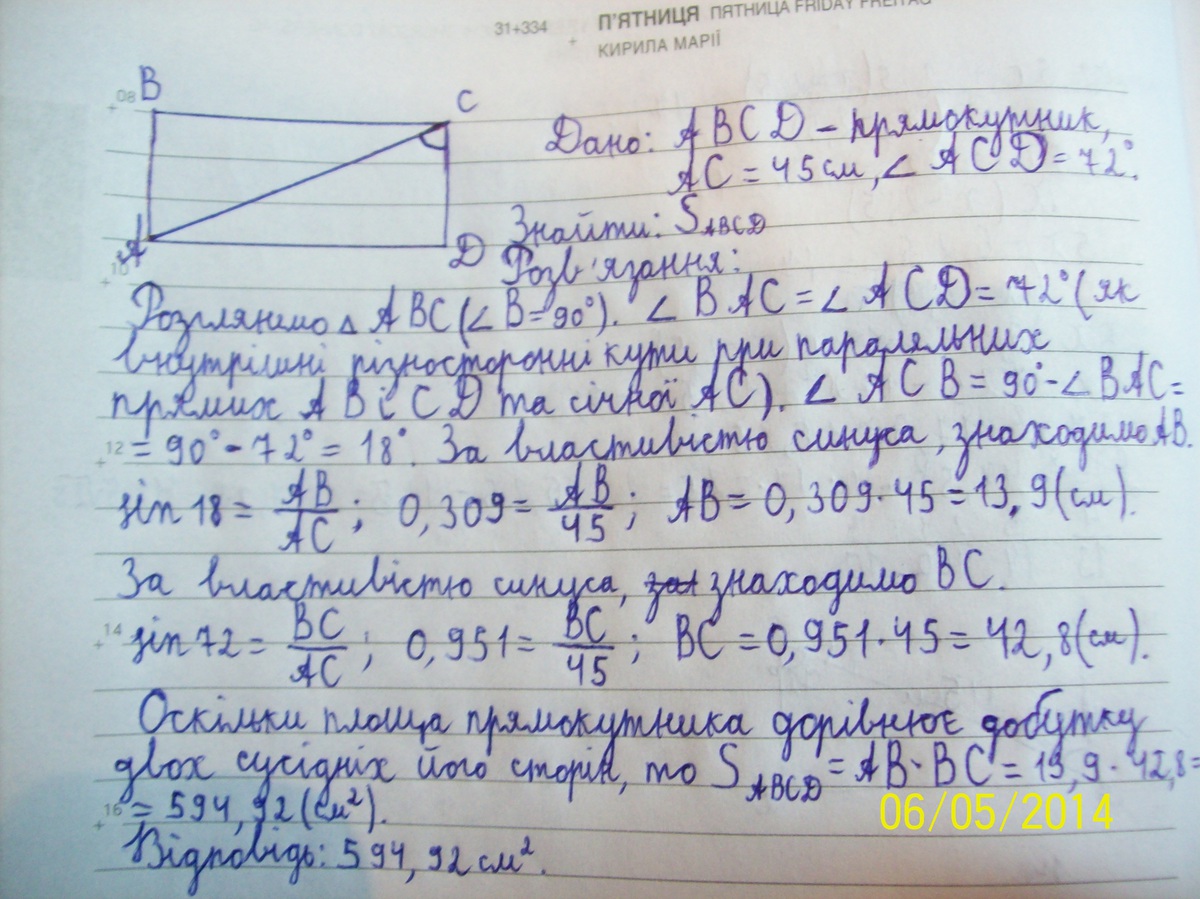 31+334 П'ЯТНИЦЯ ПЯТНИЦА FRIDAY FREITAG
КИРИЛА МАРІЇ
08 B
C
Дано: ABCD – прямокутник,
AC = 45 см, ∠ ACD = 72°.
Знайти: S ABCD
A D
10 Розв'язання:
Розглянимо △ ABC (∠ B = 90°). ∠ BAC = ∠ ACD = 72° (як
внутрішні різносторонні кути при параляльних
прямих AB і CD та січної AC). ∠ ACB = 90° - ∠ BAC =
12 = 90° - 72° = 18°. За властивістю синуса, знаходимо AB.
sin 18 = AB/AC; 0,309 = AB/45; AB = 0,309 · 45 = 13,9 (см).
За властивістю синуса, знаходимо BC.
14 sin 72 = BC/AC; 0,951 = BC/45; BC = 0,951 · 45 = 42,8 (см).
Оскільки площа прямокутника дорівнює добутку
двох сусідніх його сторін, то S ABCD = AB · BC = 13,9 · 42,8 =
16 = 594,92 (см²).
06/05/2014
Відповідь: 594,92 см².